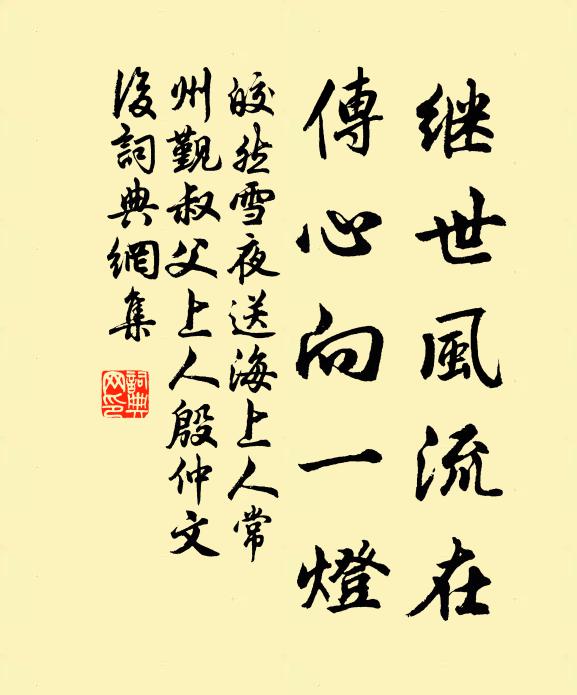 继世風流在
傳心向一燈
皎然雪夜送海上人常
州觐叔父上人殷仲文
後詞典網集
詞典
网印